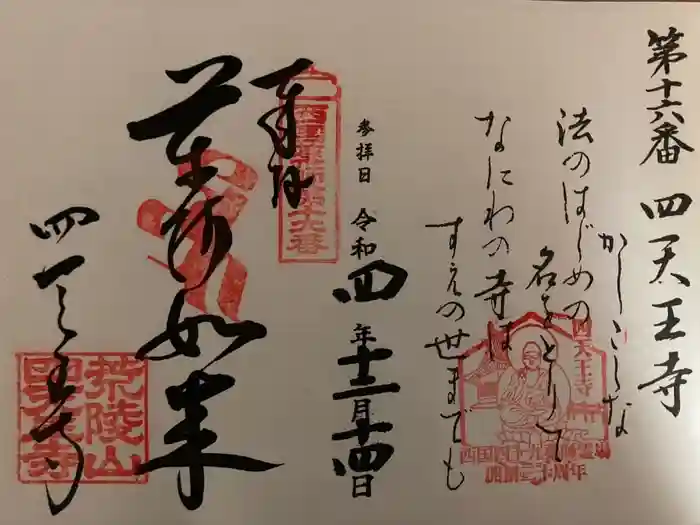 第十六番 四天王寺
かしこしな
法のはじめの
名をとりて
なにわの寺は
すえの世までも
参拝日 令和四年十二月十四日
四天王寺
西国四十九薬師霊場
奉拝
西国薬師第十六番
薬師如来
四天王寺
荒陵山
四天王寺